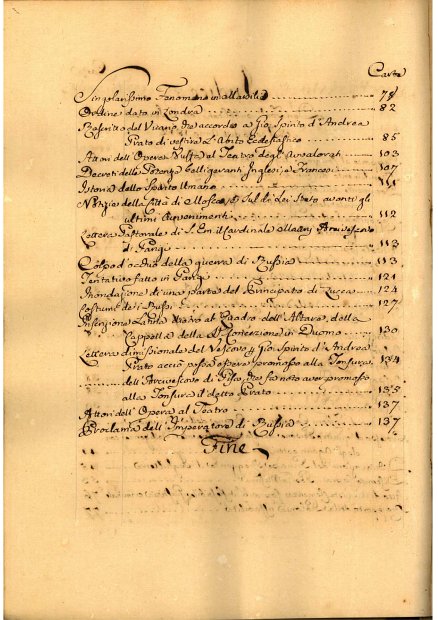 Carte
Singolarissimo Fenomeno in Marsilia 78
Ordine dato in Londra 82
Rescritto del Vicario che accorda a Gio. Spirito d'Andrea
Prato di vestire L'Abito Ecclesiastico 85
Attori dell'Opera Buffa al Teatro degli Avvalorati 103
Decreti delle Potenze belligeranti Inglesi, e Francesi 107
Istoria dello Spirito Umano 111
Notizie della Città di Mosca, e Sul di Lei Stato avanti gli
ultimi Avvenimenti 112
Lettera Pastorale di S. Em. il Cardinale Maury Arcivescovo
di Parigi 113
Colpo d'occhio della guerra di Russia 113
Tentativo fatto in Parigi 121
Inondazione di una parte del Principato di Lucca 124
Costumi dei Russi 127
Iscrizione Latina al Quadro dell'Altare della
Cappella della SS. Concezione in Duomo 130
Lettera dimissionale del Vescovo Gio. Spirito d'Andrea
Prato acciò possa essere promosso alla Tonsura 134
dell'Arcivescovo di Pisa, che fa noto aver promosso
alla Tonsura il detto Prato 135
Attori dell'Opera al Teatro 137
Proclama dell'Imperatore di Russia 137
Fine